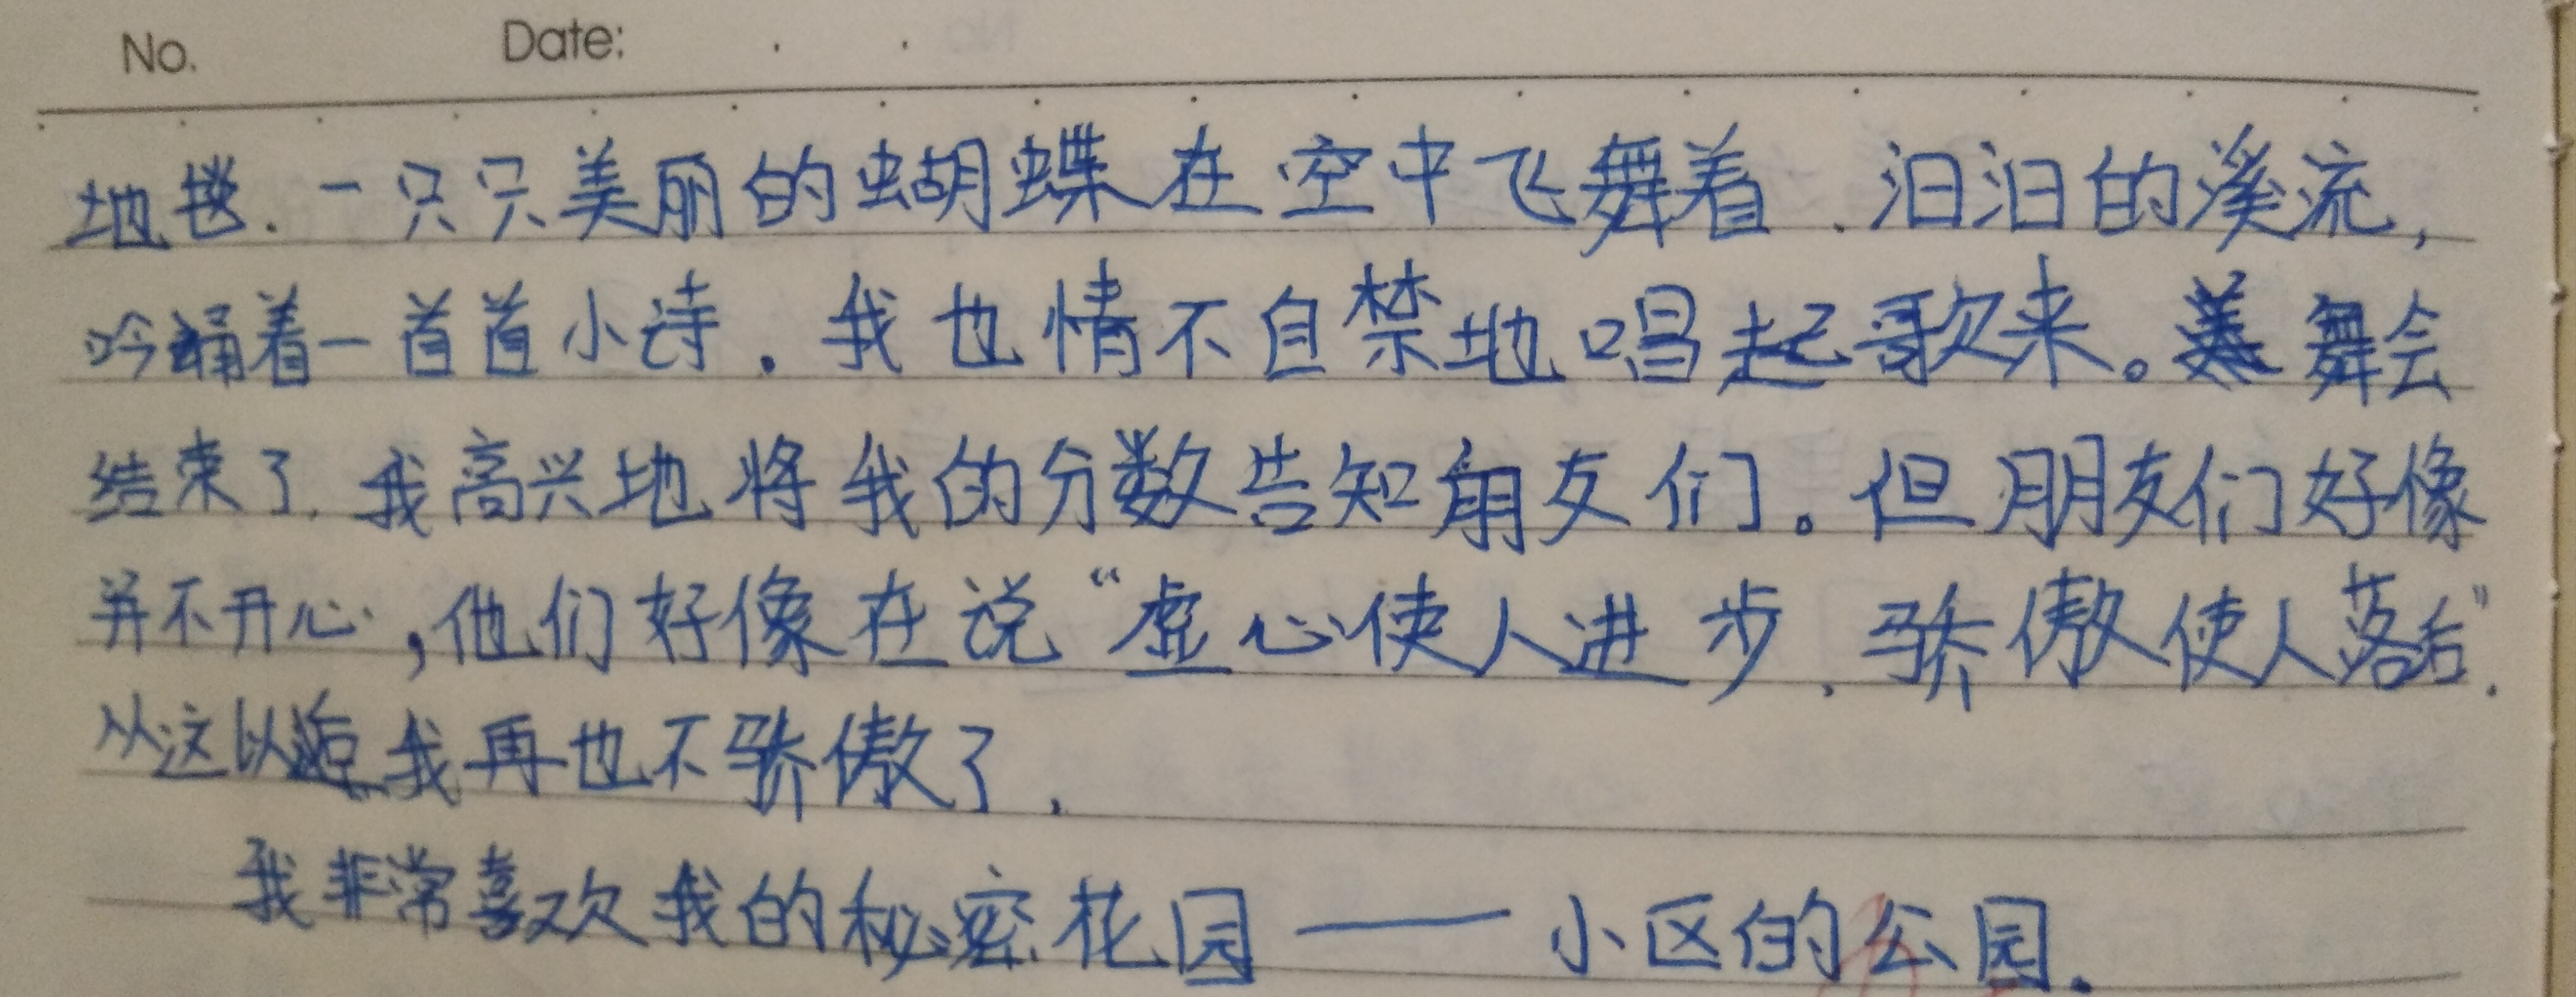 No. Date:
地毯.一只只美丽的蝴蝶在空中飞舞着.汩汩的溪流,
吟诵着一首首小诗.我也情不自禁地唱起歌来。舞会
结束了.我高兴地将我的分数告知朋友们。但朋友们好像
并不开心,他们好像在说“虚心使人进步.骄傲使人落后”.
从这以后我再也不骄傲了.
我非常喜欢我的秘密花园——小区的公园.